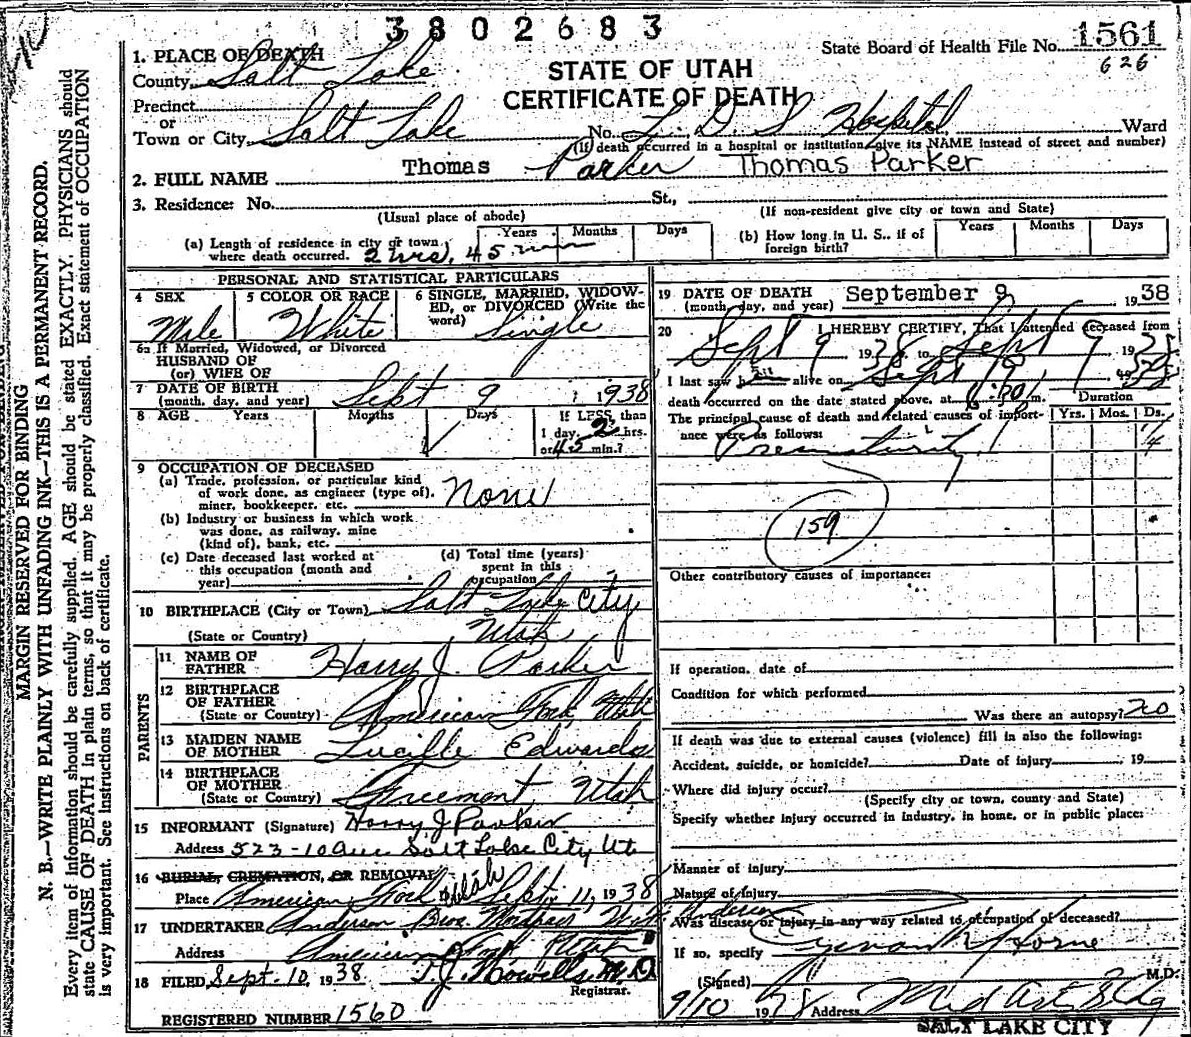 3802683
State Board of Health File No. 1561
626
STATE OF UTAH
CERTIFICATE OF DEATH
1. PLACE OF DEATH
County Salt Lake
Precinct
or
Town or City Salt Lake No. L. D. S Hospital, Ward
(If death occurred in a hospital or institution, give its NAME instead of street and number)
2. FULL NAME Thomas Parker Thomas Parker
3. Residence: No. St.,
(Usual place of abode) (If non-resident give city or town and State)
(a) Length of residence in city or town where death occurred. 2 hrs, 45 min Years Months Days
(b) How long in U. S., if of foreign birth? Years Months Days
PERSONAL AND STATISTICAL PARTICULARS
4 SEX Male
5 COLOR OR RACE White
6 SINGLE, MARRIED, WIDOWED, or DIVORCED (Write the word) Single
6a If Married, Widowed, or Divorced
HUSBAND OF
(or) WIFE OF
7 DATE OF BIRTH
(month, day, and year) Sept 9, 1938
8 AGE Years Months Days
If LESS than
1 day, 2 hrs.
or 45 min.?
9 OCCUPATION OF DECEASED
(a) Trade, profession, or particular kind
of work done, as engineer (type of),
miner, bookkeeper, etc. None
(b) Industry or business in which work
was done, as railway, mine
(kind of), bank, etc.
(c) Date deceased last worked at
this occupation (month and
year)
(d) Total time (years)
spent in this
occupation
10 BIRTHPLACE (City or Town) Salt Lake City
(State or Country) Utah
PARENTS
11 NAME OF
FATHER Harry J. Parker
12 BIRTHPLACE
OF FATHER
(State or Country) American Fork, Utah
13 MAIDEN NAME
OF MOTHER Lucille Edwards
14 BIRTHPLACE
OF MOTHER
(State or Country) Freemont, Utah
15 INFORMANT (Signature) Harry J Parker
Address 523-10 Ave Salt Lake City Ut
16 BURIAL, CREMATION, OR REMOVAL
Place American Fork Utah Sept. 11, 1938
17 UNDERTAKER Anderson Bros.
Address American Fork Utah
18 FILED, Sept. 10, 1938. T. J. Howells, M.D.
Registrar.
REGISTERED NUMBER 1560
19 DATE OF DEATH
(month, day, and year) September 9 1938
20 I HEREBY CERTIFY, That I attended deceased from
Sept 9, 1938, to Sept 9, 1938
I last saw h alive on Sept 9, 1938
death occurred on the date stated above, at m.
The principal cause of death and related causes of importance were as follows:
Duration
Yrs. Mos. Ds.
Prematurity
159
Other contributory causes of importance:
If operation, date of
Condition for which performed
Was there an autopsy? no
If death was due to external causes (violence) fill in also the following:
Accident, suicide, or homicide? Date of injury 19
Where did injury occur?
(Specify city or town, county and State)
Specify whether injury occurred in industry, in home, or in public place:
Manner of injury
Nature of injury
Was disease or injury in any way related to occupation of deceased?
If so, specify
(Signed) M.D.
9/10 1938 Address Med Art Bldg
SALT LAKE CITY
MARGIN RESERVED FOR BINDING
N. B.—WRITE PLAINLY WITH UNFADING INK—THIS IS A PERMANENT RECORD.
Every item of information should be carefully supplied. AGE should be stated EXACTLY. PHYSICIANS should
state CAUSE OF DEATH in plain terms, so that it may be properly classified. Exact statement of OCCUPATION
is very important. See Instructions on back of certificate.